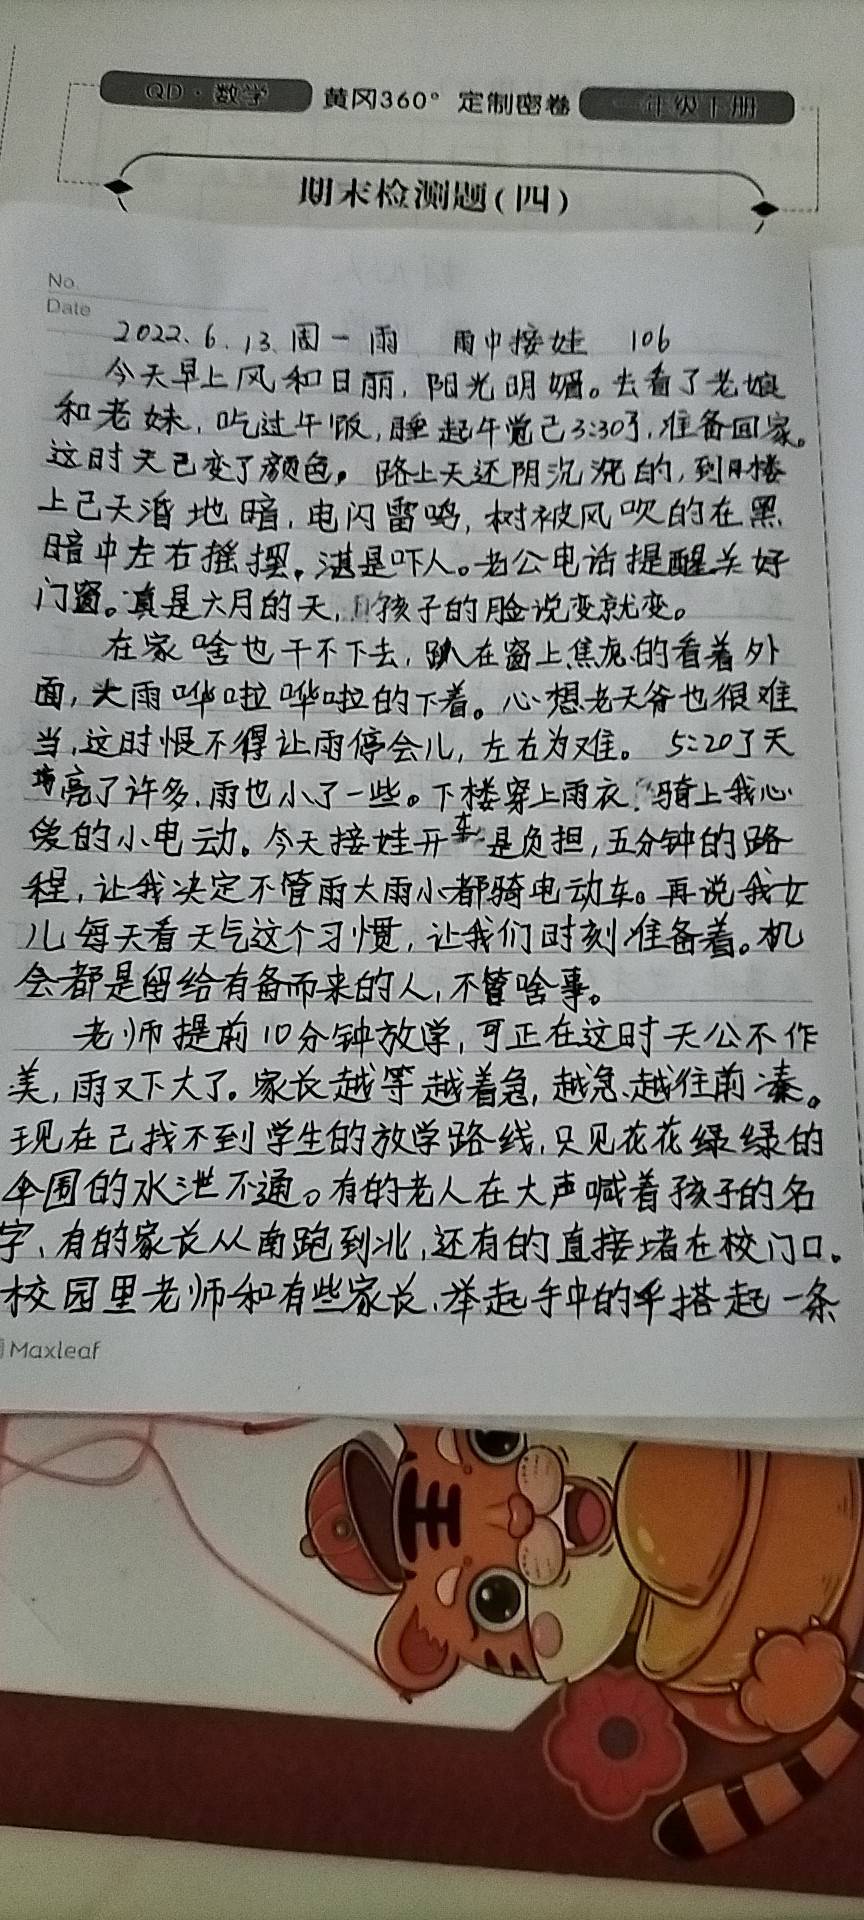 QD·数学 黄冈360°定制密卷 一年级下册
期末检测题(四)
No.
Date
2022.6.13.周一 雨 雨中接娃 106
今天早上风和日丽,阳光明媚。去看了老娘
和老妹,吃过午饭,睡起午觉已3:30了,准备回家。
这时天已变了颜色。路上天还阴沉沉的,到楼
上已天潽地暗,电闪雷鸣,树被风吹的在黑
暗中左右摇摆。湛是吓人。老公电话提醒关好
门窗。真是六月的天,孩子的脸说变就变。
在家啥也干不下去,趴在窗上焦虑的看着外
面,大雨哗啦哗啦的下着。心想老天爷也很难
当,这时恨不得让雨停会儿,左右为难。5:20了天
亮了许多,雨也小了一些。下楼穿上雨衣,骑上我心
爱的小电动。今天接娃开车是负担,五分钟的路
程,让我决定不管雨大雨小都骑电动车。再说我女
儿每天看天气这个习惯,让我们时刻准备着。机
会都是留给有备而来的人,不管啥事。
老师提前10分钟放学,可正在这时天公不作
美,雨又下大了。家长越等越着急,越急、越往前凑。
现在已找不到学生的放学路线,只见花花绿绿的
伞围的水泄不通。有的老人在大声喊着孩子的名
字、有的家长从南跑到北,还有的直接堵在校门口。
校园里老师和有些家长、举起手中的伞搭起一条
Maxleaf